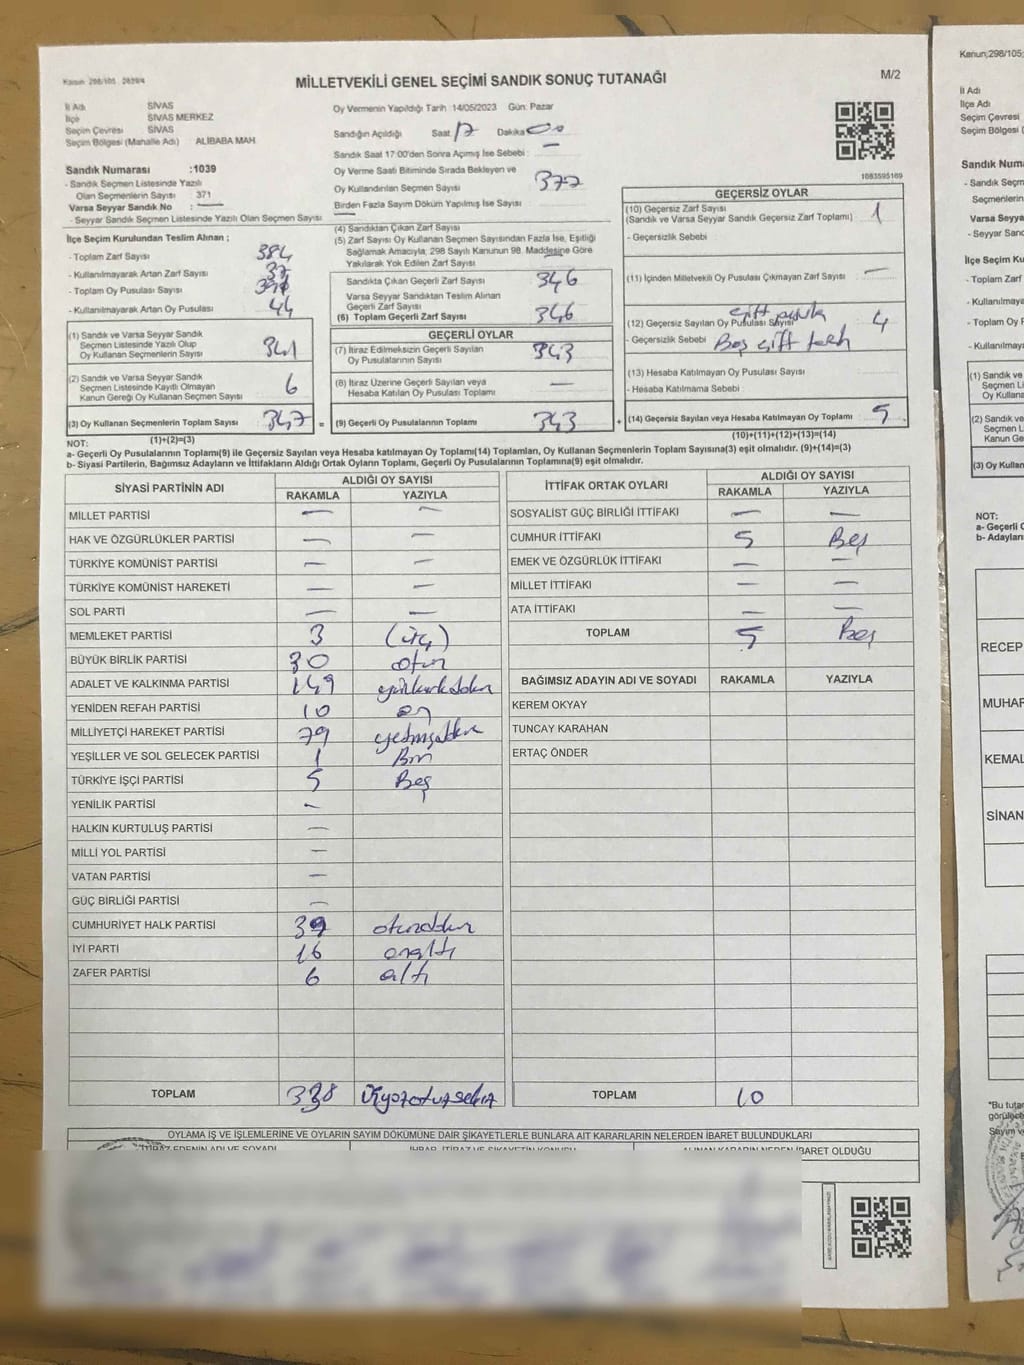 Kanun: 298/105, 2839/4
MİLLETVEKİLİ GENEL SEÇİMİ SANDIK SONUÇ TUTANAĞI
M/2
İl Adı SİVAS
İlçe SİVAS MERKEZ
Seçim Çevresi SİVAS
Seçim Bölgesi (Mahalle Adı) ALİBABA MAH
Sandık Numarası :1039
- Sandık Seçmen Listesinde Yazılı
Olan Seçmenlerin Sayısı : 371
Varsa Seyyar Sandık No :
- Seyyar Sandık Seçmen Listesinde Yazılı Olan Seçmen Sayısı
Oy Vermenin Yapıldığı Tarih :14/05/2023 Gün: Pazar
Sandığın Açıldığı Saat 17 Dakika 00
Sandık Saat 17:00'den Sonra Açımış İse Sebebi : —
Oy Verme Saati Bitiminde Sırada Bekleyen ve
Oy Kullandırılan Seçmen Sayısı 377
Birden Fazla Sayım Döküm Yapılmış İse Sayısı
1083595169
İlçe Seçim Kurulundan Teslim Alınan ;
- Toplam Zarf Sayısı 384
- Kullanılmayarak Artan Zarf Sayısı 37
- Toplam Oy Pusulası Sayısı
- Kullanılmayarak Artan Oy Pusulası 44
(1) Sandık ve Varsa Seyyar Sandık
Seçmen Listesinde Yazılı Olup
Oy Kullanan Seçmenlerin Sayısı 341
(2) Sandık ve Varsa Seyyar Sandık
Seçmen Listesinde Kayıtlı Olmayan
Kanun Gereği Oy Kullanan Seçmen Sayısı 6
(3) Oy Kullanan Seçmenlerin Toplam Sayısı 347 =
(1)+(2)=(3)
(4) Sandıktan Çıkan Zarf Sayısı
(5) Zarf Sayısı Oy Kullanan Seçmen Sayısından Fazla İse, Eşitliği
Sağlamak Amacıyla; 298 Sayılı Kanunun 98. Maddesine Göre
Yakılarak Yok Edilen Zarf Sayısı
Sandıkta Çıkan Geçerli Zarf Sayısı 346
Varsa Seyyar Sandıktan Teslim Alınan
Geçerli Zarf Sayısı
(6) Toplam Geçerli Zarf Sayısı 346
GEÇERLİ OYLAR
(7) İtiraz Edilmeksizin Geçerli Sayılan
Oy Pusulalarının Sayısı 343
(8) İtiraz Üzerine Geçerli Sayılan veya
Hesaba Katılan Oy Pusulası Toplamı —
(9) Geçerli Oy Pusulalarının Toplamı 343 +
GEÇERSİZ OYLAR
(10) Geçersiz Zarf Sayısı
(Sandık ve Varsa Seyyar Sandık Geçersiz Zarf Toplamı) 1
- Geçersizlik Sebebi
(11) İçinden Milletvekili Oy Pusulası Çıkmayan Zarf Sayısı —
çift pusula
(12) Geçersiz Sayılan Oy Pusulası Sayısı 4
- Geçersizlik Sebebi Boş çift
(13) Hesaba Katılmayan Oy Pusulası Sayısı
- Hesaba Katılmama Sebebi
(14) Geçersiz Sayılan veya Hesaba Katılmayan Oy Toplamı 5
(10)+(11)+(12)+(13)=(14)
NOT:
a- Geçerli Oy Pusulalarının Toplamı(9) ile Geçersiz Sayılan veya Hesaba katılmayan Oy Toplamı(14) Toplamları, Oy Kullanan Seçmenlerin Toplam Sayısına(3) eşit olmalıdır. (9)+(14)=(3)
b- Siyasi Partilerin, Bağımsız Adayların ve İttifakların Aldığı Ortak Oyların Toplamı, Geçerli Oy Pusulalarının Toplamına(9) eşit olmalıdır.
SİYASİ PARTİNİN ADI ALDIĞI OY SAYISI
RAKAMLA YAZIYLA
MİLLET PARTİSİ — —
HAK VE ÖZGÜRLÜKLER PARTİSİ — —
TÜRKİYE KOMÜNİST PARTİSİ — —
TÜRKİYE KOMÜNİST HAREKETİ — —
SOL PARTİ — —
MEMLEKET PARTİSİ 3 (üç)
BÜYÜK BİRLİK PARTİSİ 30 otuz
ADALET VE KALKINMA PARTİSİ 149 yüzkırkdokuz
YENİDEN REFAH PARTİSİ 10 on
MİLLİYETÇİ HAREKET PARTİSİ 79 yetmişdokuz
YEŞİLLER VE SOL GELECEK PARTİSİ 1 Bir
TÜRKİYE İŞÇİ PARTİSİ 5 Beş
YENİLİK PARTİSİ —
HALKIN KURTULUŞ PARTİSİ —
MİLLİ YOL PARTİSİ —
VATAN PARTİSİ —
GÜÇ BİRLİĞİ PARTİSİ —
CUMHURİYET HALK PARTİSİ 39 otuzdokuz
İYİ PARTİ 16 onaltı
ZAFER PARTİSİ 6 altı
TOPLAM 338 Üçyüzotuzsekiz
İTTİFAK ORTAK OYLARI ALDIĞI OY SAYISI
RAKAMLA YAZIYLA
SOSYALİST GÜÇ BİRLİĞİ İTTİFAKI — —
CUMHUR İTTİFAKI 5 Beş
EMEK VE ÖZGÜRLÜK İTTİFAKI — —
MİLLET İTTİFAKI — —
ATA İTTİFAKI — —
TOPLAM 5 Beş
BAĞIMSIZ ADAYIN ADI VE SOYADI RAKAMLA YAZIYLA
KEREM OKYAY
TUNCAY KARAHAN
ERTAÇ ÖNDER
TOPLAM 10
OYLAMA İŞ VE İŞLEMLERİNE VE OYLARIN SAYIM DÖKÜMÜNE DAİR ŞİKAYETLERLE BUNLARA AİT KARARLARIN NELERDEN İBARET BULUNDUKLARI
İTİRAZ EDENİN ADI VE SOYADI İHBAR, İTİRAZ VE ŞİKAYETİN KONUSU ALINAN KARARIN NEDEN İBARET OLDUĞU
Kanun;298/105;
İl Adı
İlçe Adı
Seçim Çevresi
Seçim Bölgesi
Sandık Num
- Sandık Seçm
Seçmenlerin
Varsa Seyya
- Seyyar Sand
İlçe Seçim Ku
- Toplam Zarf
- Kullanılmaya
- Toplam Oy P
- Kullanılmay
(1) Sandık ve
Seçmen Li
Oy Kullana
(2) Sandık ve
Seçmen L
Kanun Ge
(3) Oy Kullan
NOT:
a- Geçerli O
b- Adayları
RECEP
MUHAR
KEMAL
SİNAN
"Bu tuta
görülece
Sayım ve